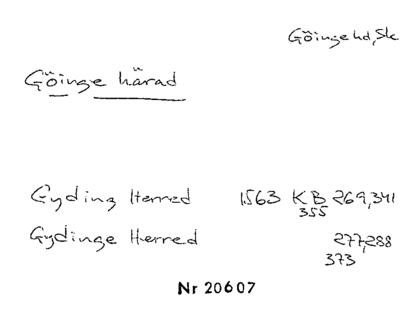 Göinge hd, Sk
Göinge härad
Gyding Herred 1563 KB 269,341
355
Gydinge Herred 277,288
373
Nr 20607